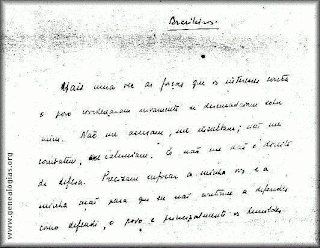 Brasileiros.
Mais uma vez as forças que os interesses contra
o povo coordenaram novamente se desencadeiam sobre
mim. Não me acusam, me insultam; não me
combatem, caluniam. E não me dão o direito
de defesa. Precisam sufocar a minha voz e a
minha para que eu não continue a defender
como defendi, o povo e principalmente os humildes.
www.genealogias.org